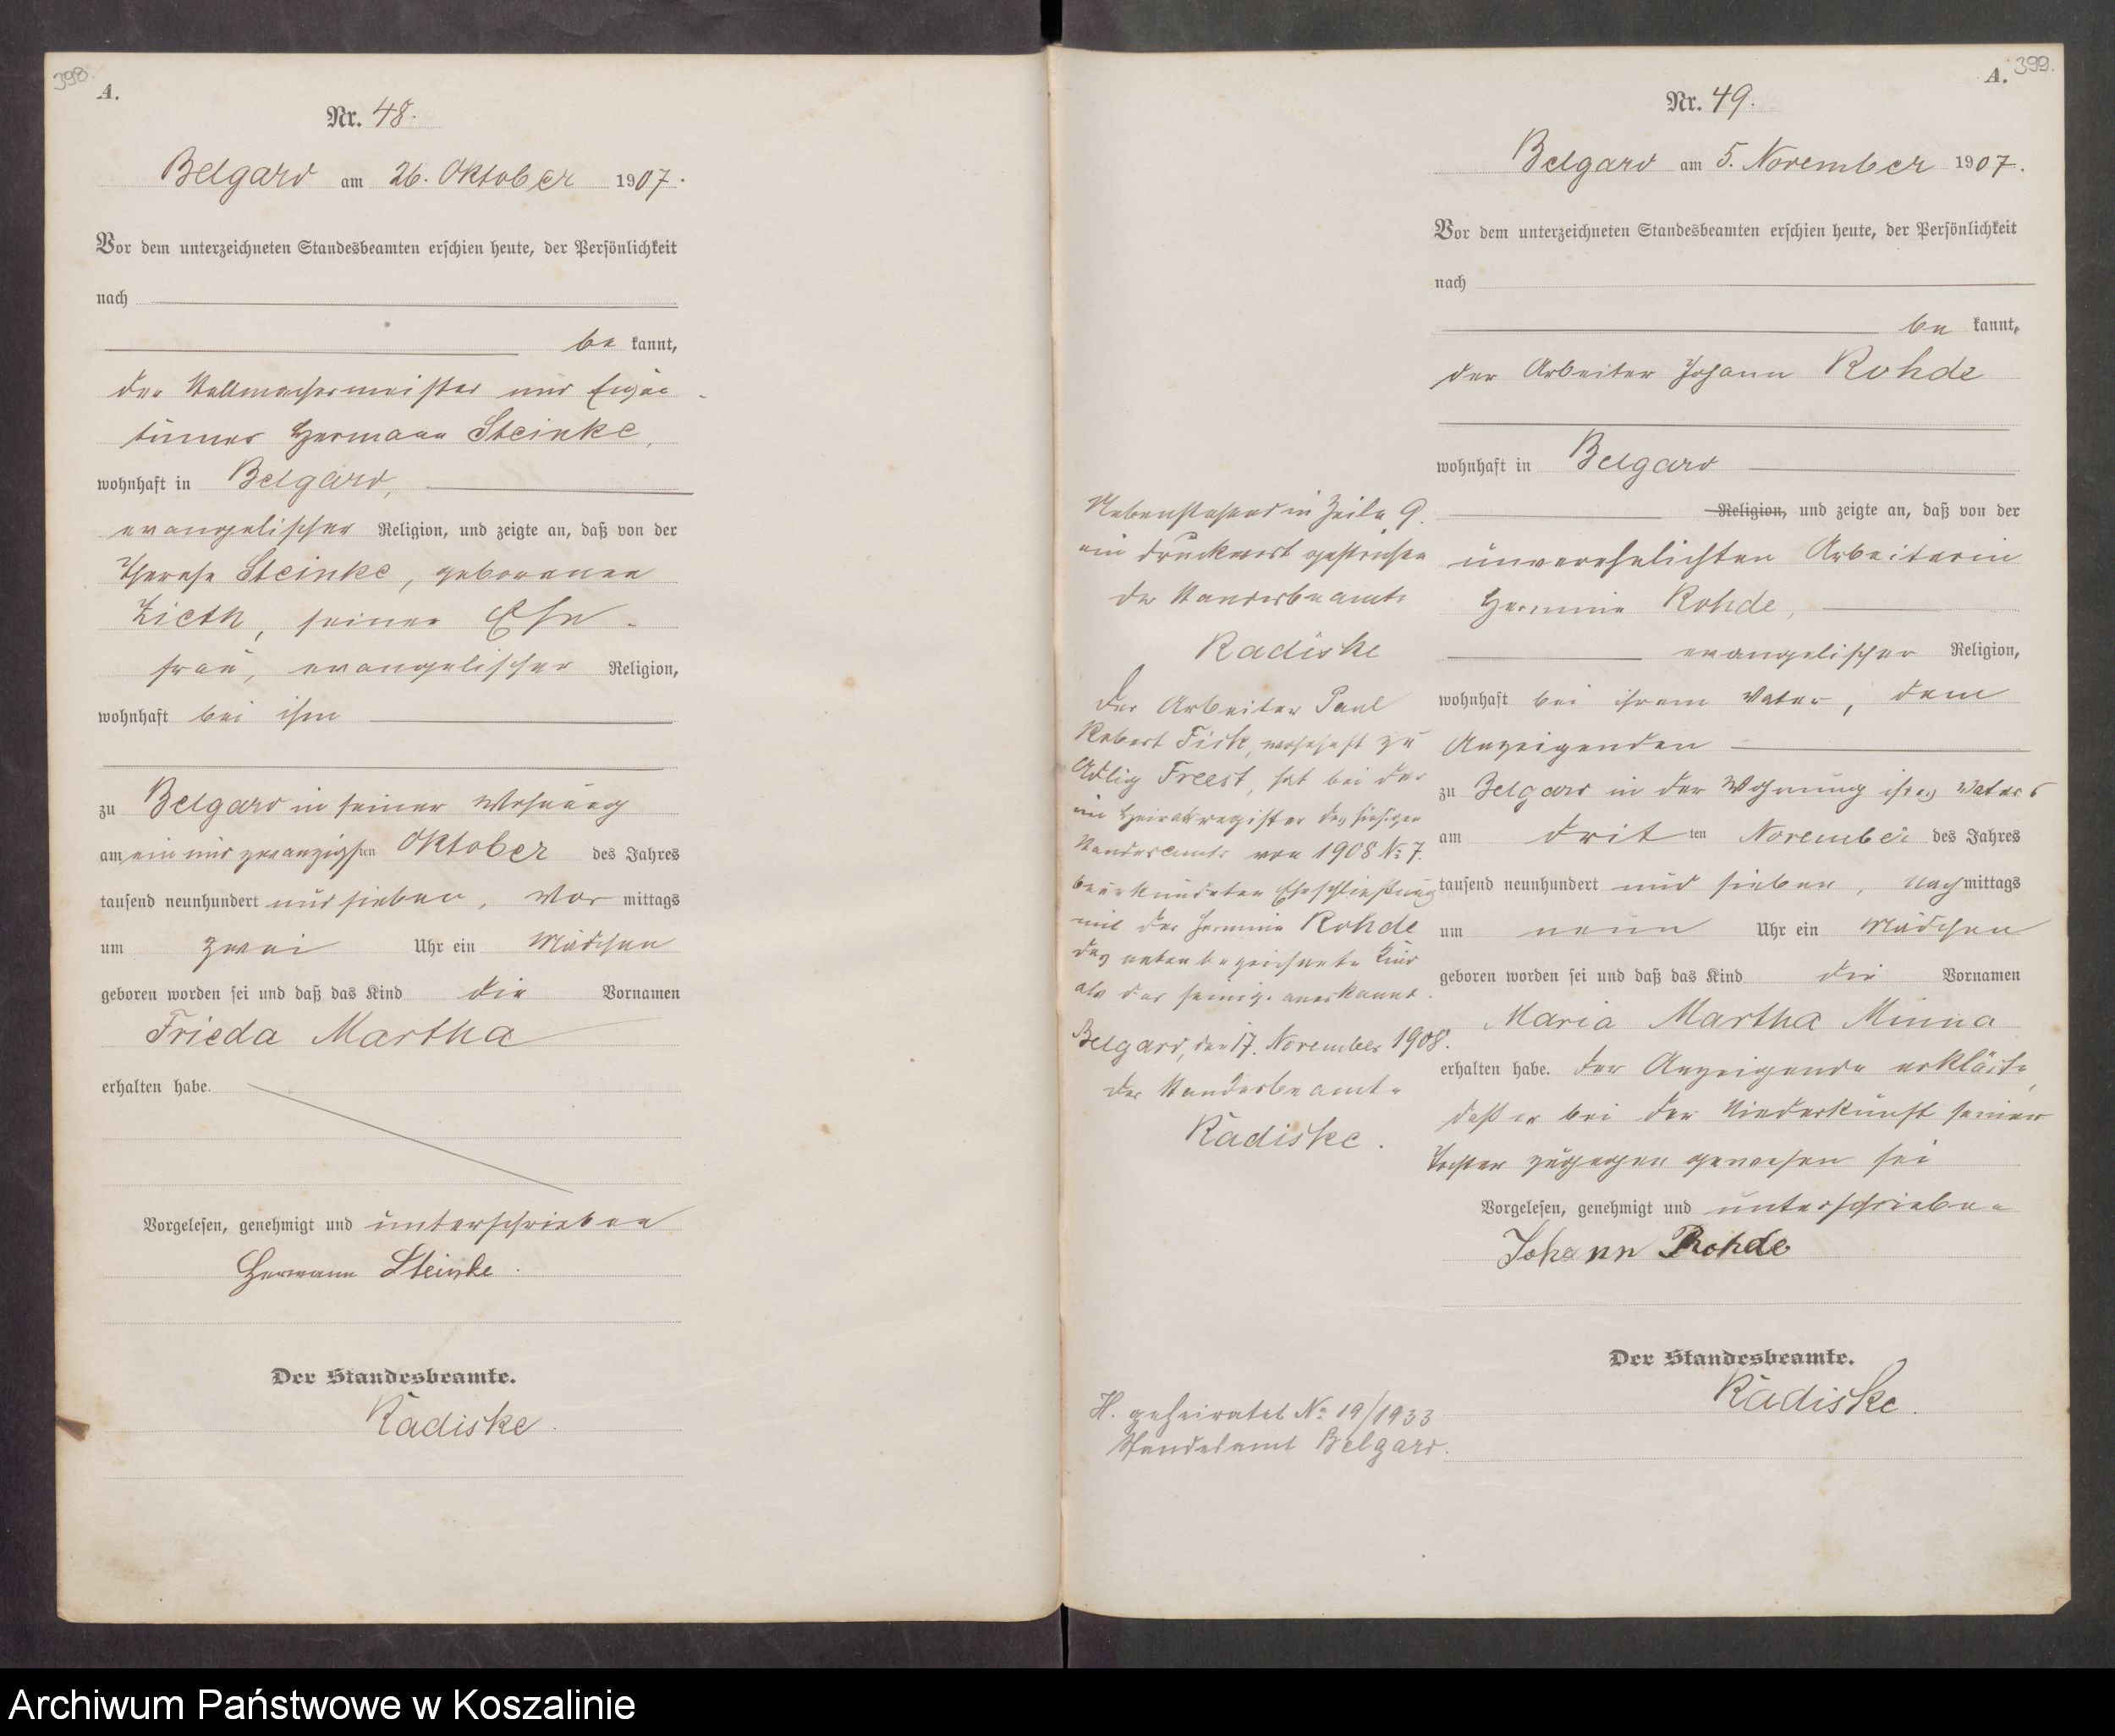 398.
A.
Nr. 48.
Belgard am 26. Oktober 1907.
Vor dem unterzeichneten Standesbeamten erschien heute, der Persönlichkeit
nach
be kannt,
der Stellmachermeister und Eigen-
tümer Hermann Steinke,
wohnhaft in Belgard,
evangelischer Religion, und zeigte an, daß von der
Therese Steinke, geborenen
Zieth, seiner Ehe-
frau, evangelischer Religion,
wohnhaft bei ihm
zu Belgard in seiner Wohnung
am ein und zwanzigsten Oktober des Jahres
tausend neunhundert und sieben, Vor mittags
um zwei Uhr ein Mädchen
geboren worden sei und daß das Kind die Vornamen
Frieda Martha
erhalten habe.
Vorgelesen, genehmigt und unterschrieben
Hermann Steinke.
Der Standesbeamte.
Radiske.
399.
A.
Nr. 49.
Belgard am 5. November 1907.
Vor dem unterzeichneten Standesbeamten erschien heute, der Persönlichkeit
nach
be kannt,
der Arbeiter Johann Rohde
wohnhaft in Belgard
Religion, und zeigte an, daß von der
unverehelichten Arbeiterin
Hermine Rohde,
evangelischer Religion,
wohnhaft bei ihrem Vater, dem
Anzeigenden
zu Belgard in der Wohnung ihres Vaters
am drit ten November des Jahres
tausend neunhundert und sieben, nach mittags
um neun Uhr ein Mädchen
geboren worden sei und daß das Kind die Vornamen
Maria Martha Minna
erhalten habe. Der Anzeigende erklärte,
daß er bei der Niederkunft seiner
Tochter zugegen gewesen sei
Vorgelesen, genehmigt und unterschrieben
Johann Rohde
Der Standesbeamte.
Radiske.
Nebenstehend in Zeile 9.
ein Druckwort gestrichen
Der Standesbeamte
Radiske
Der Arbeiter Paul
Robert Fick, wohnhaft zu
Adlig Freest, hat bei der
im Heiratsregister des hiesigen
Standesamts von 1908 No 7.
beurkundeten Eheschließung
mit der Hermine Rohde
das nebenbezeichnete Kind
als das seinige anerkannt.
Belgard, den 17. November 1908.
Der Standesbeamte
Radiske.
H. geheiratet No 19/1933
Standesamt Belgard.
Archiwum Państwowe w Koszalinie